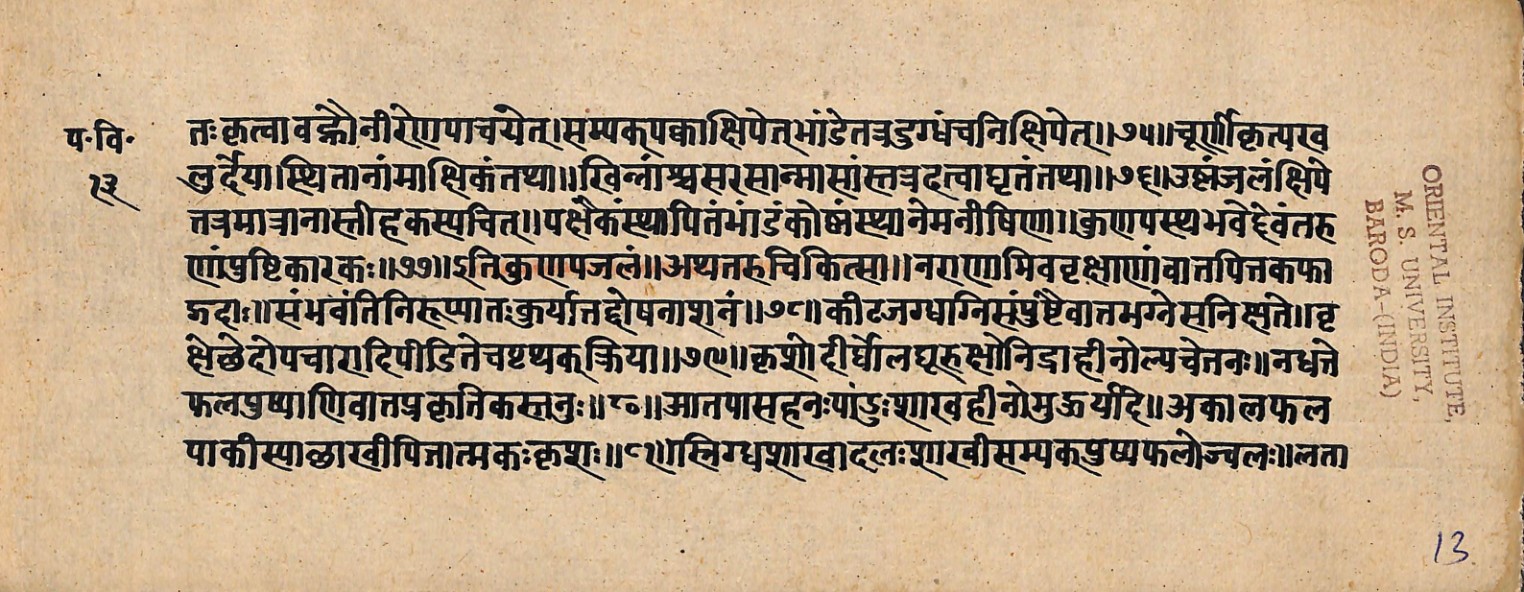 प॰वि॰
१३
तः कृत्वा वह्नौ नीरेण पाचयेत्। सम्यक् पक्वा क्षिपेत् भांडे तत्र दुग्धं च निक्षिपेत्॥७५॥ चूर्णीकृत्य ख
लुर्देया स्थितानां माक्षिकं तथा॥ खिन्नांश्च सरसान्मासांस्तत्र दत्वा घृतं तथा॥७६॥ उष्णं जलं क्षिपे
त्तत्र मात्रा नास्तीह कस्यचित्॥ पक्षैकं स्थापितं भांडं कोष्णस्थाने मनीषिणा॥ कुणपस्थ भवेद्देवं तरु
णां पुष्टिकारकः॥७७॥ इति कुणपजलं॥ अथ तरुचिकित्सा॥ नराणामिव वृक्षाणां वातपित्तकफा
द्गदाः॥ संभवंति निरूप्यातः कुर्यात्तद्दोषनाशनं॥७८॥ कीटजग्धाग्निसंपुष्टे वातभग्नेसनिक्षते॥ वृ
क्षे छेदोपचारादिपीडिते च पृथक् क्रिया॥७९॥ कृशो दीर्घो लघू रुक्षो निद्राहीनोल्पचेतनः॥ न धत्ते
फलपुष्पाणि वातप्रकृतिकस्तनुः॥८०॥ आतपासहनः पांडुः शाखहीनो मुऊर्यदि॥ अकालफल
पाकी स्पाछाखी पित्तात्मकः कृशः॥८१॥ स्निग्धशाखादलः शाखी सम्यक् पुष्पफलोज्वलः॥ लता
ORIENTAL INSTITUTE,
M. S. UNIVERSITY,
BARODA-(INDIA)
13